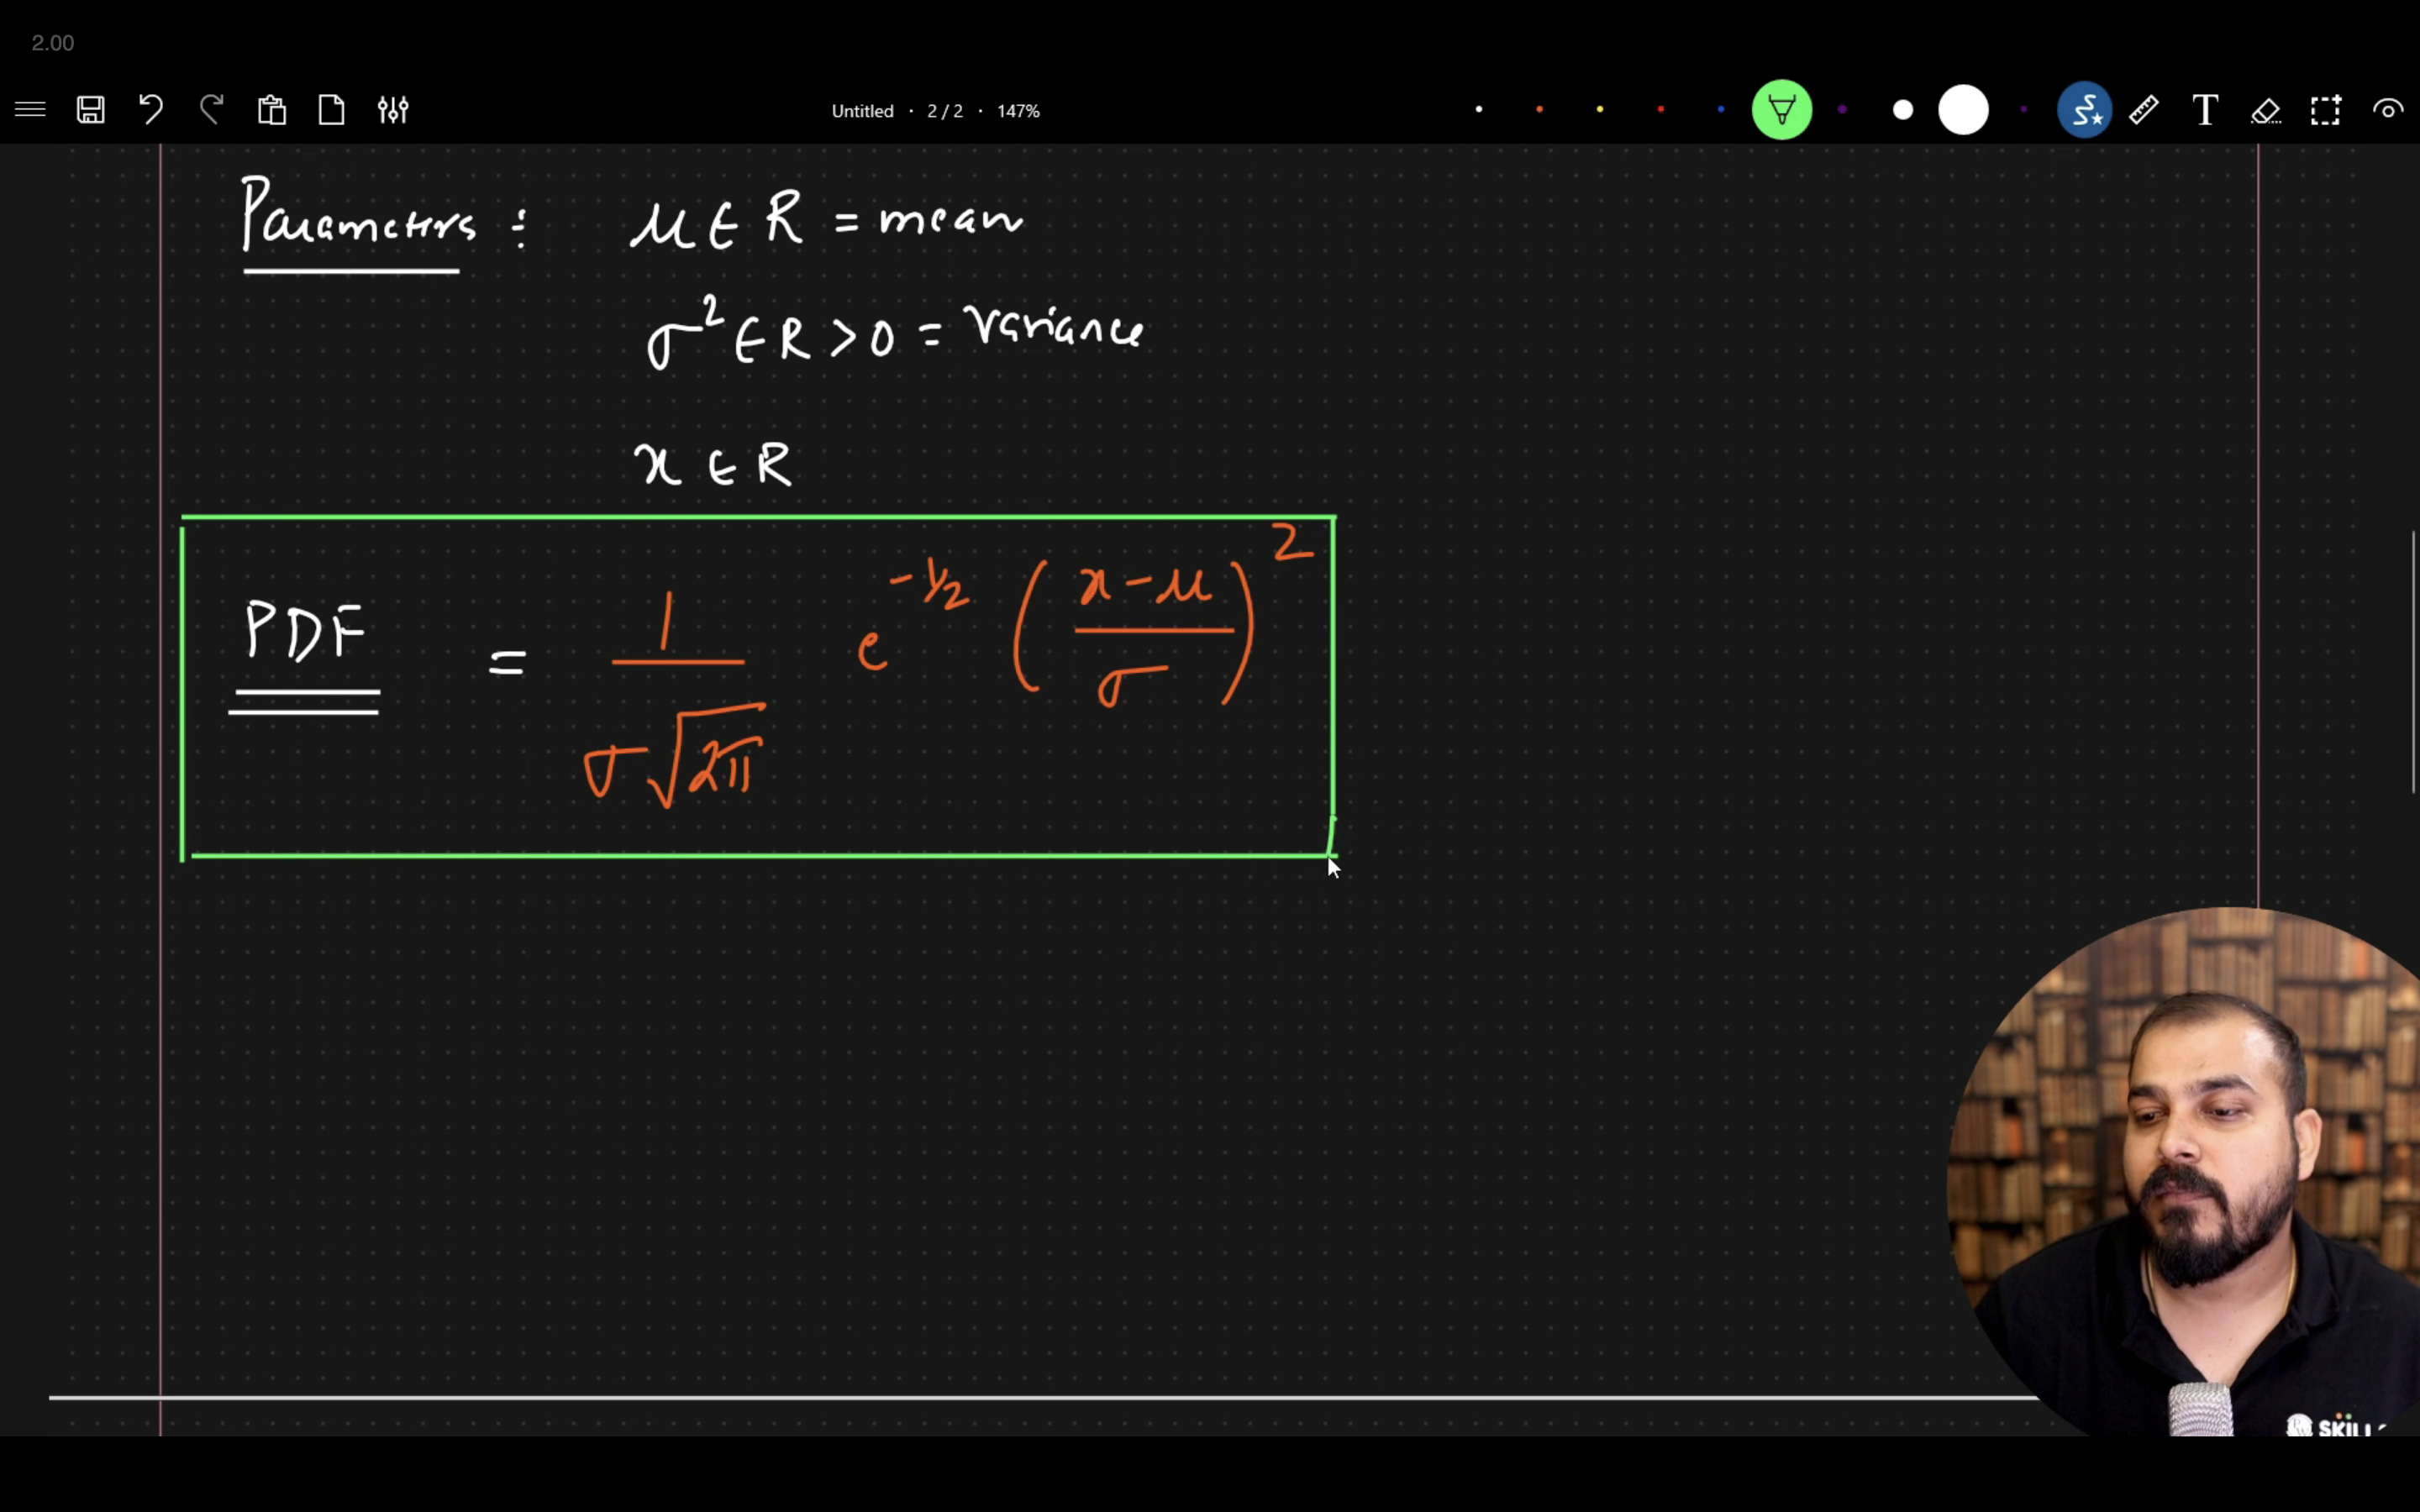 2.00
Untitled · 2 / 2 · 147%
T
Parameters : μ ∈ R = mean
σ² ∈ R > 0 = variance
x ∈ R
PDF = 1 / σ√2π e^-1/2 (x - μ / σ)^2
SKILL